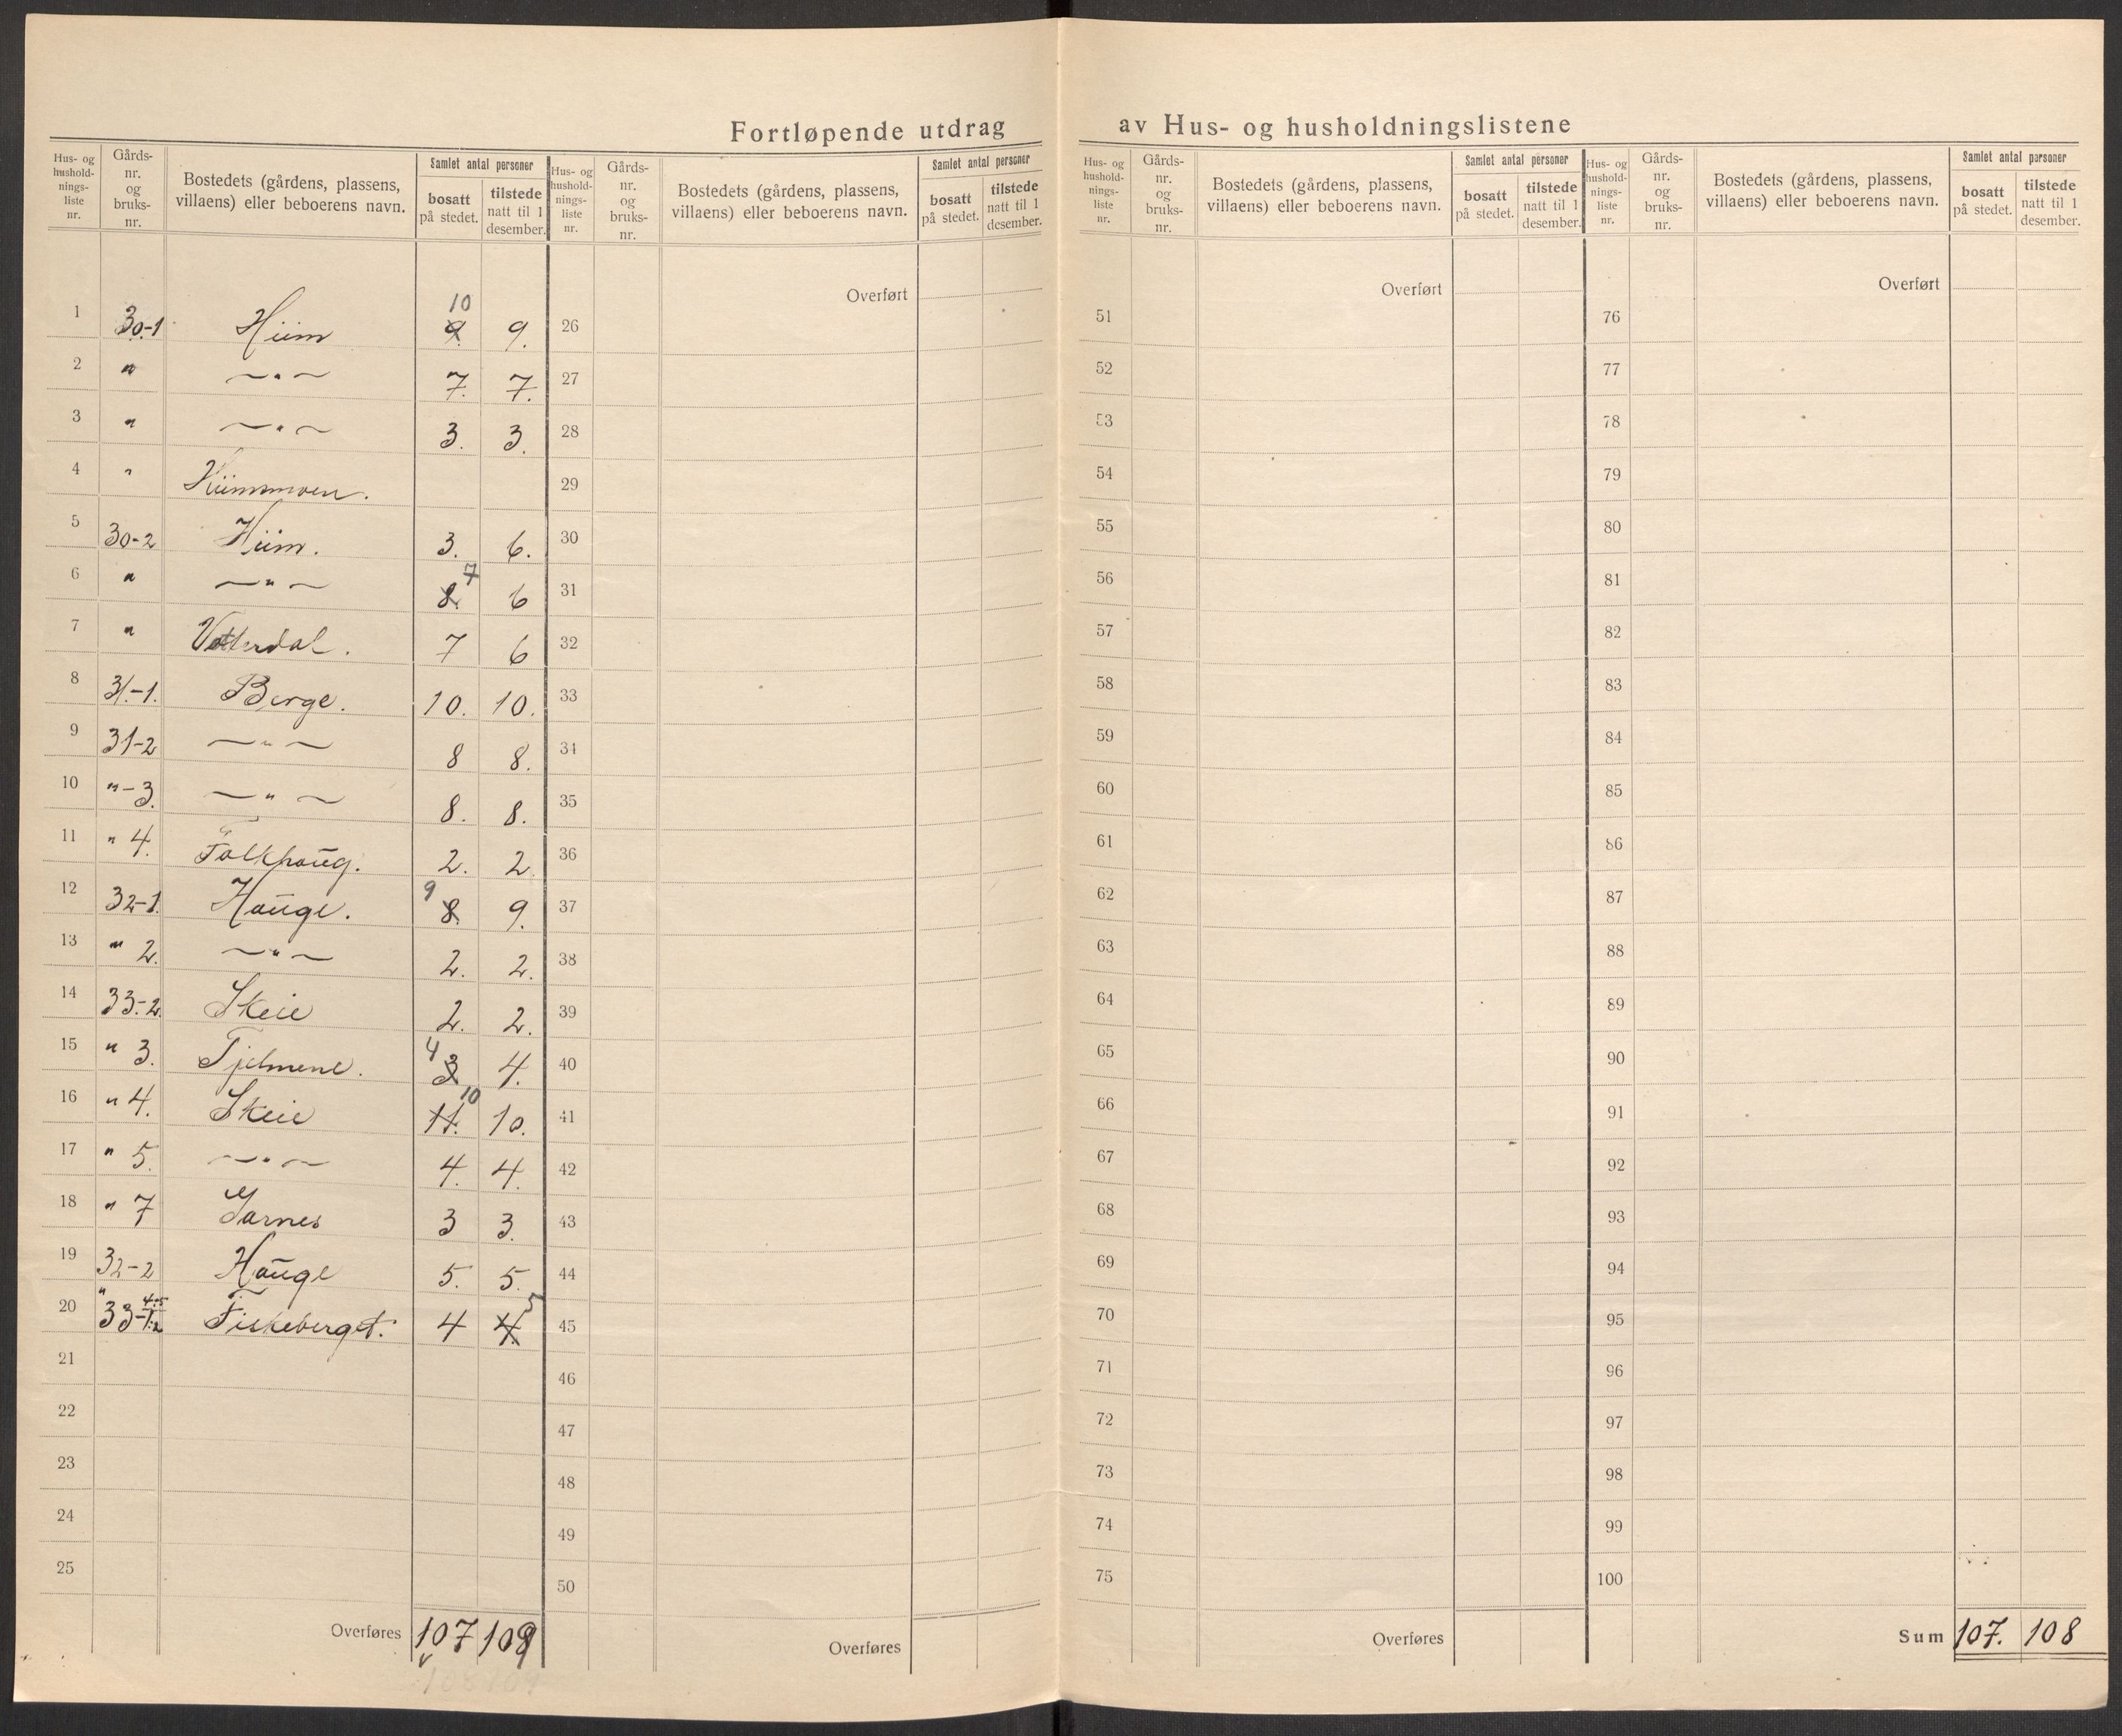 Fortløpende utdrag av Hus- og husholdningslistene
Hus- og hushold-nings-liste nr. | Gårds-nr. og bruks-nr. | Bostedets (gårdens, plassens, villaens) eller beboerens navn. | Samlet antal personer | bosatt på stedet. | tilstede natt til 1 desember.
Hus- og hushold-nings-liste nr. | Gårds-nr. og bruks-nr. | Bostedets (gårdens, plassens, villaens) eller beboerens navn. | Samlet antal personer | bosatt på stedet. | tilstede natt til 1 desember.
1 30-1 Hiim 9. 10 9.
2 " — " — 7. 7.
3 " — " — 3. 3.
4 " Hiimmoen.
5 30-2 Hiim. 3. 6.
6 " — " — 8. 7 6
7 " Vatterdal. 7 6
8 31-1. Berge. 10. 10.
9 31-2 — " — 8 8.
10 "-3. — " — 8. 8.
11 " 4. Falkhaug. 2. 2.
12 32-1. Hauge. 8. 9 9.
13 " 2. — " — 2. 2.
14 33-2. Skeie 2. 2.
15 " 3. Tjelmene. 3 4 4.
16 " 4. Skeie 11. 10 10.
17 " 5. — " — 4. 4.
18 " 7 Garnes 3 3.
19 32-2 Hauge 5. 5.
20 33- Fiskeberget. 4 4. 5
21
22
23
24
25
Overføres 107 109
Overført
26
27
28
29
30
31
32
33
34
35
36
37
38
39
40
41
42
43
44
45
46
47
48
49
50
Overføres
Hus- og hushold-nings-liste nr. | Gårds-nr. og bruks-nr. | Bostedets (gårdens, plassens, villaens) eller beboerens navn. | Samlet antal personer | bosatt på stedet. | tilstede natt til 1 desember.
Overført
51
52
53
54
55
56
57
58
59
60
61
62
63
64
65
66
67
68
69
70
71
72
73
74
75
Overføres
Hus- og hushold-nings-liste nr. | Gårds-nr. og bruks-nr. | Bostedets (gårdens, plassens, villaens) eller beboerens navn. | Samlet antal personer | bosatt på stedet. | tilstede natt til 1 desember.
Overført
76
77
78
79
80
81
82
83
84
85
86
87
88
89
90
91
92
93
94
95
96
97
98
99
100
Sum 107. 108